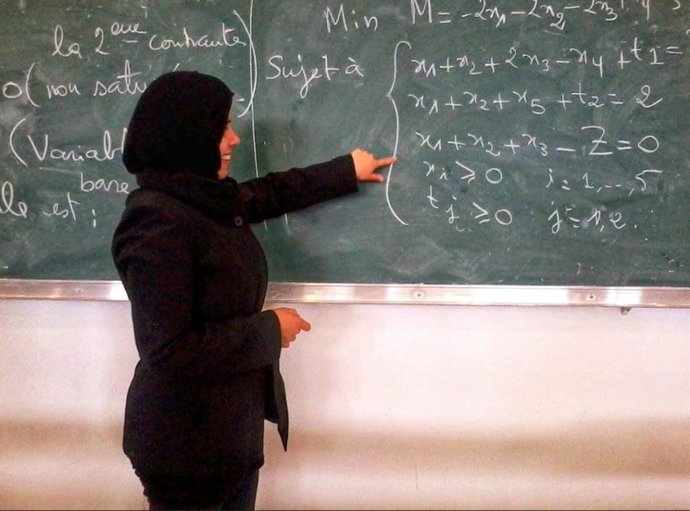 la 2ème contrainte)
0 (non satu
(Variabl
base
le est :
Min M = -2x1 - 2x2 - 2x3 + x4
Sujet à
x1 + x2 + 2x3 - x4 + t1 =
x1 + x2 + x5 + t2 = 2
x1 + x2 + x3 - Z = 0
xi ≥ 0 i = 1, ..., 5
tj ≥ 0 j = 1, 2.